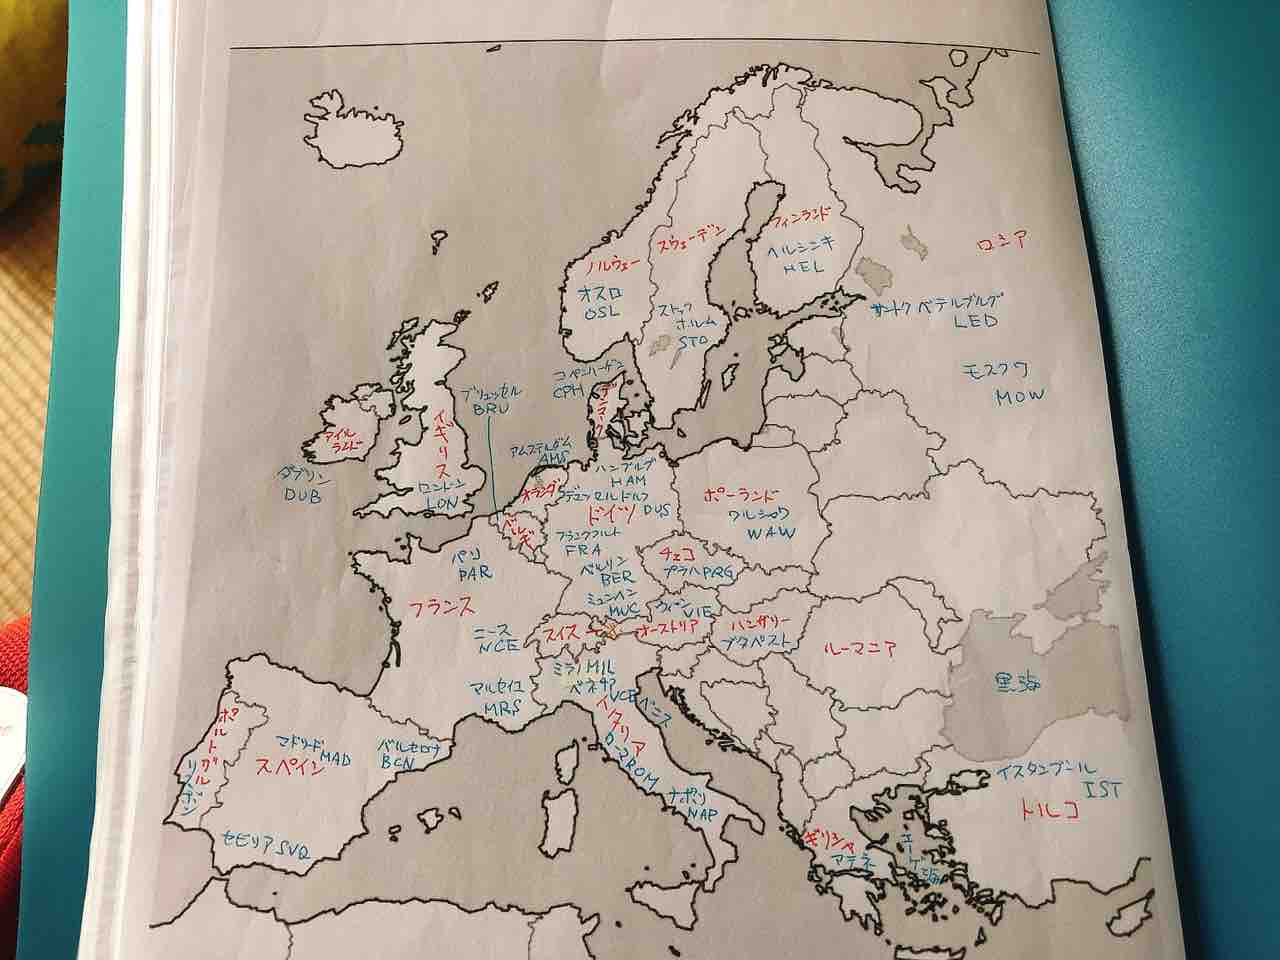 フィンランド
ヘルシンキ
HEL
スウェーデン
ストック
ホルム
STO
ノルウェー
オスロ
OSL
ロシア
サンクトペテルブルグ
LED
モスクワ
MOW
コペンハーゲン
CPH
デンマーク
ブリュッセル
BRU
アイル
ランド
ダブリン
DUB
イギリス
ロンドン
LON
アムステルダム
AMS
オランダ
ベルギー
ハンブルグ
HAM
デュッセルドルフ
DUS
ドイツ
フランクフルト
FRA
ベルリン
BER
ミュンヘン
MUC
ポーランド
ワルシャワ
WAW
チェコ
プラハPRG
ウィーン
VIE
オーストリア
ハンガリー
ブタペスト
ルーマニア
黒海
パリ
PAR
フランス
ニース
NCE
マルセイユ
MRS
スイス
ミラノMIL
ベネチア
VCE ベニス
イタリア
ローマROM
ナポリ
NAP
ポルトガル
リスボン
マドリード
MAD
スペイン
バルセロナ
BCN
セビリアSVQ
ギリシャ
アテネ
エーゲ海
イスタンブール
IST
トルコ